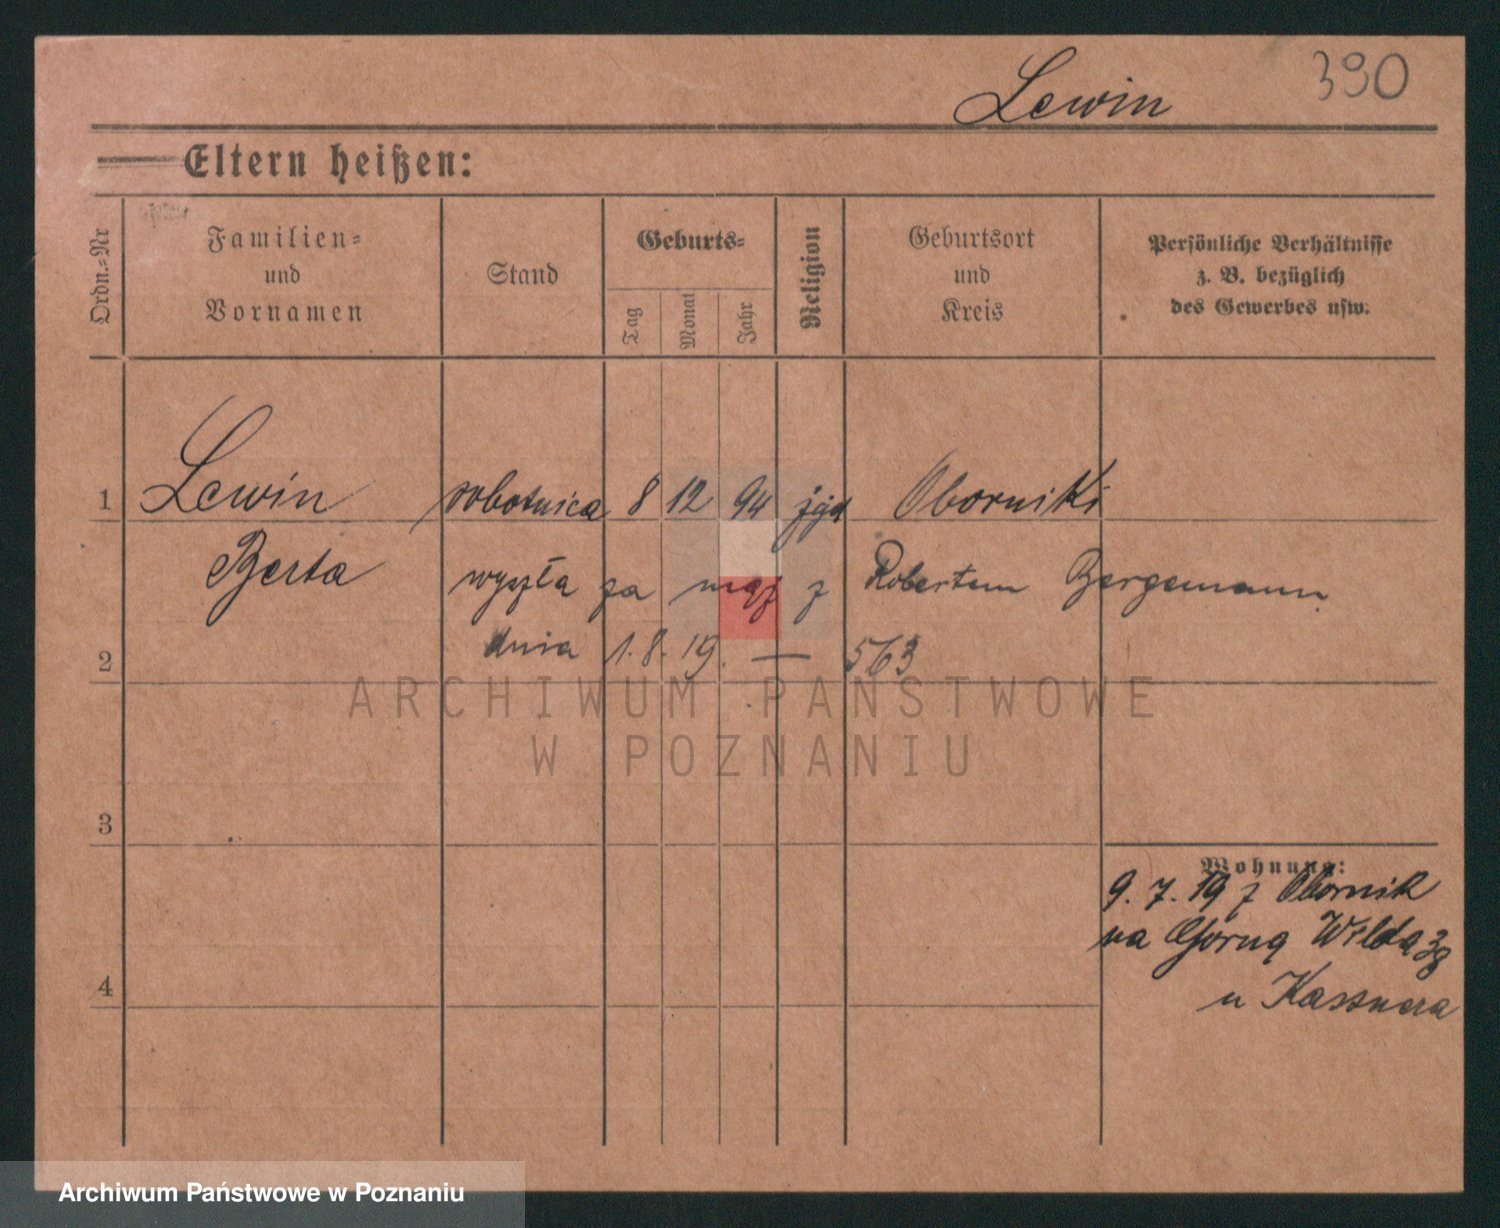 Lewin 390
Eltern heißen:
Ordn.-Nr
Familien-
und
Vornamen
Stand
Geburts-
Tag
Monat
Jahr
Religion
Geburtsort
und
Kreis
Persönliche Verhältnisse
z. B. bezüglich
des Gewerbes usw.
1 Lewin robotnica 8 12 94 Oborniki
Berta wyszła za mąż z Robertem Bergemann
2 dnia 1. 8. 19. — 563
ARCHIWUM PAŃSTWOWE
W POZNANIU
3
Wohnung:
9. 7. 19 z Obornik
na Górną Wildą
4
u Kassnera
Archiwum Państwowe w Poznaniu